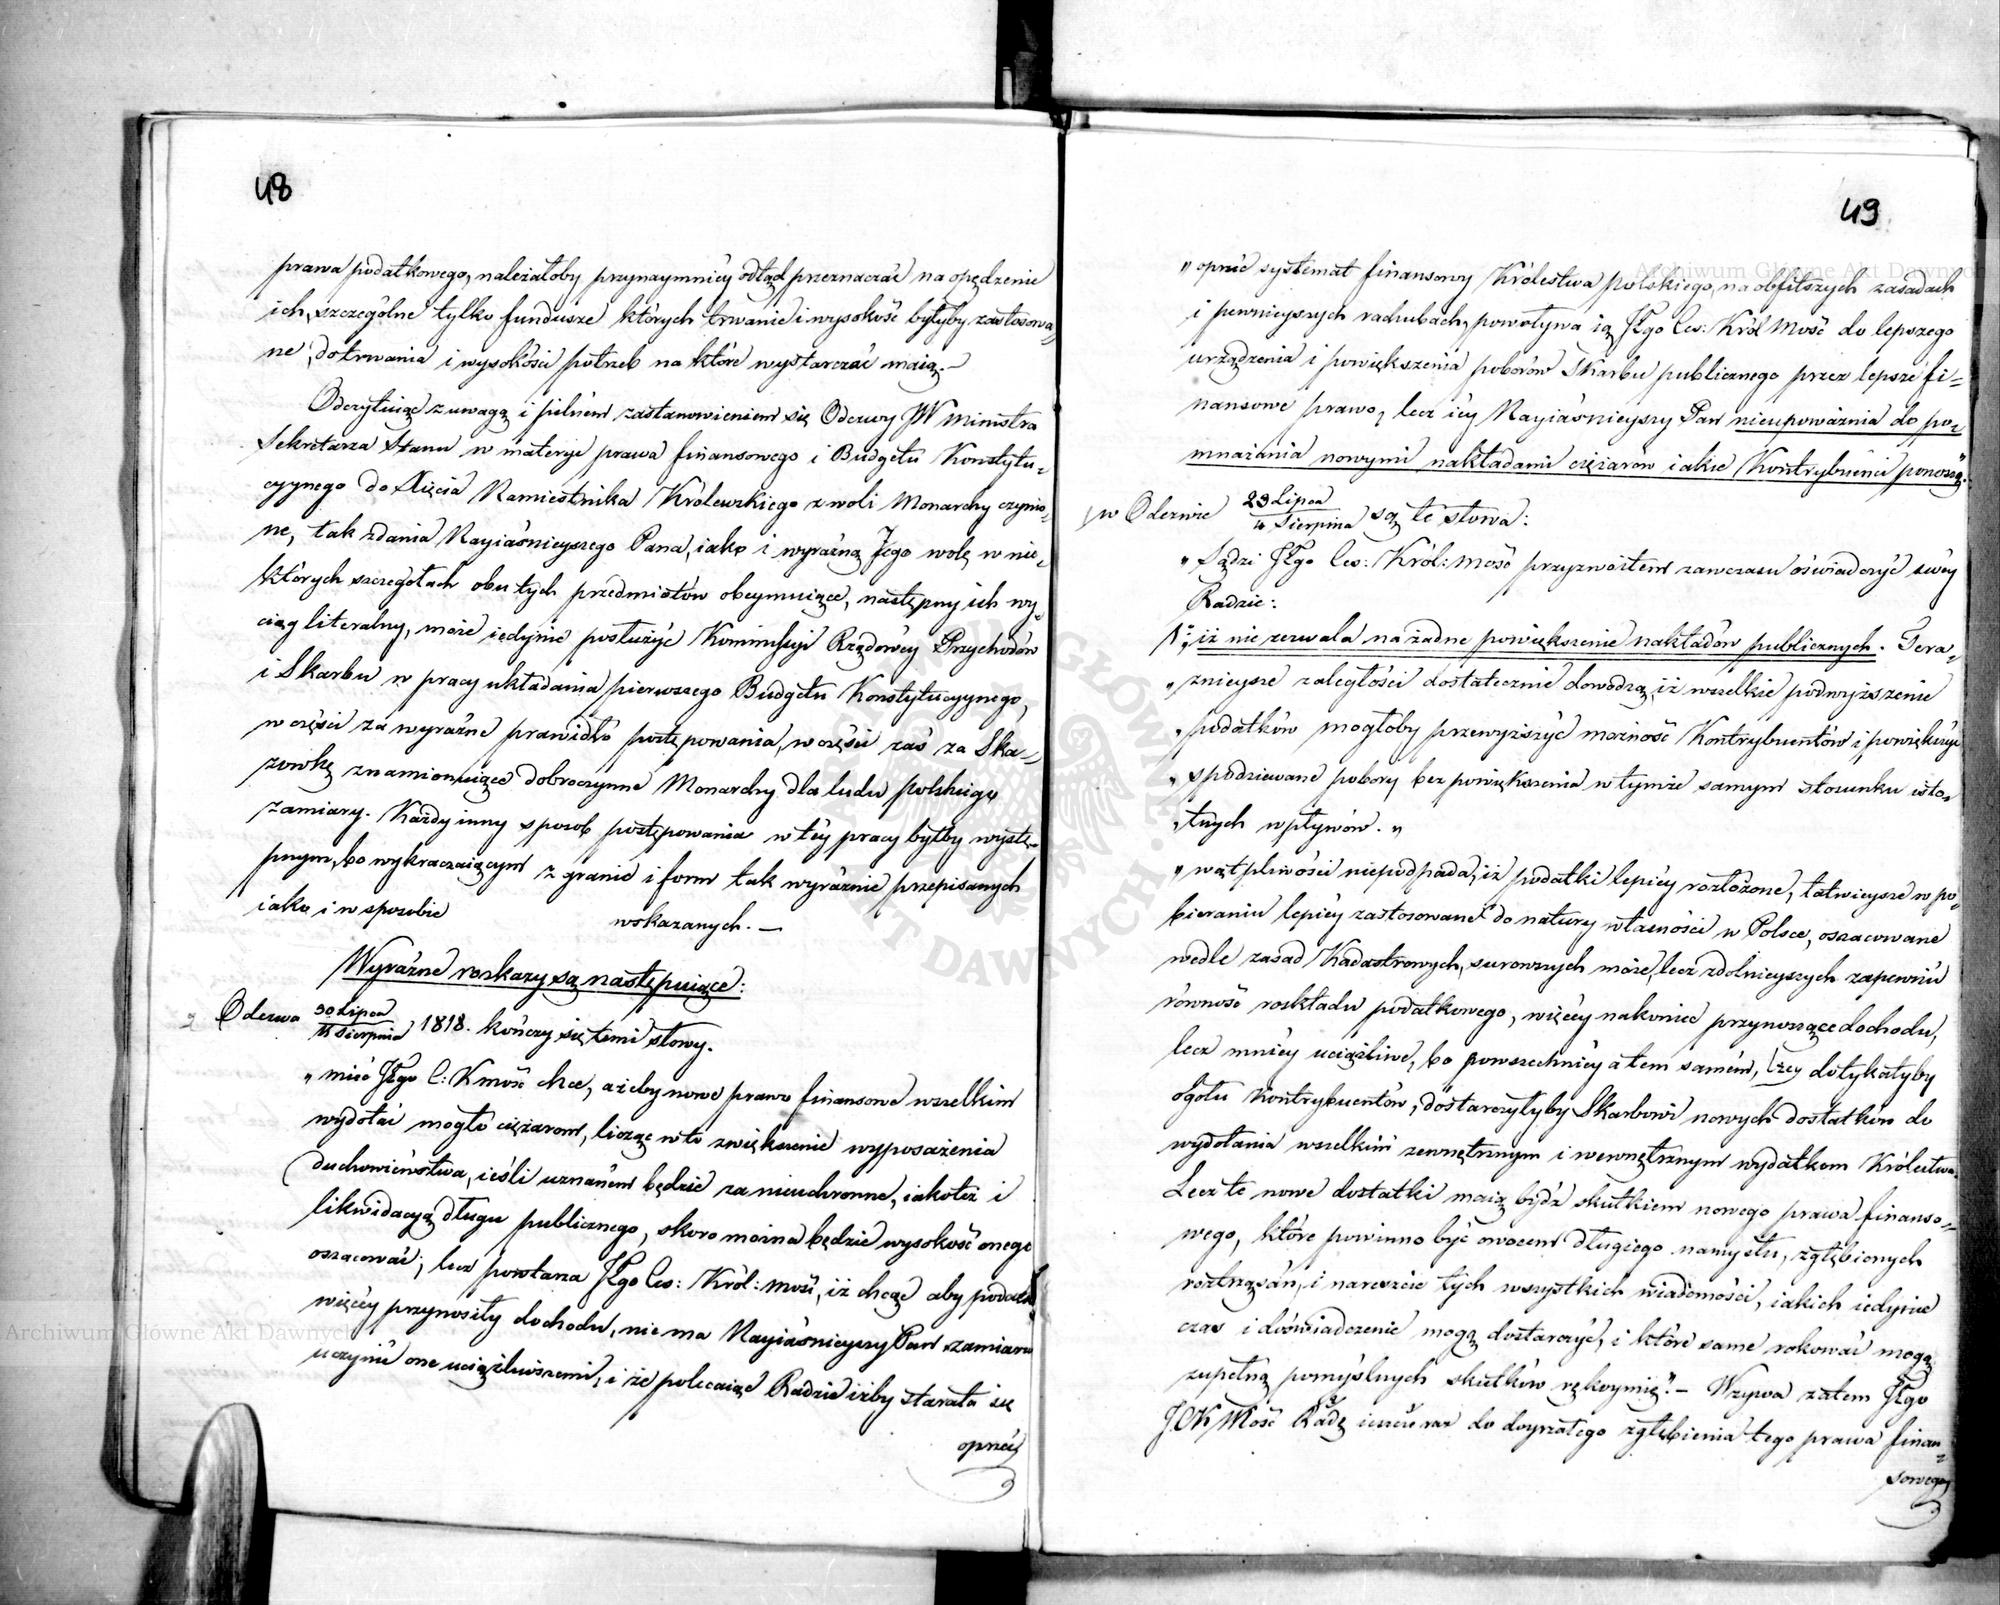 48
prawa podatkowego, należałoby przynaymniéy odtąd przeznaczać na opędzenie
ich, szczególne tylko fundusze których trwanie i wysokość byłyby zastosowa„
ne, do trwania i wysokości potrzeb na które wystarczać maią. —
Odczytuiąc z uwagą i pilném zastanowieniem się Odezwy JW Ministra
Sekretarza Stanu w materyi prawa finansowego i Budgetu Konstytu„
cyynego do Xięcia Namiestnika Królewskiego z woli Monarchy czynio„
ne, tak zdania Nayiaśnieyszego Pana, iako i wyraźną Jego wolę w nie„
których szczegółach obu tych przedmiotów obeymuiące, następny ich wy„
ciąg literalny, może iedynie posłużyć Kommissyi Rządowéy Przychodów
i Skarbu w pracy układania pierwszego Budgetu Konstytucyynego,
w części za wyraźne prawidło postępowania, w części zaś za Ska„
zowkę znamionuiące dobroczynne Monarchy dla ludu polskiego
zamiary. Każdy inny sposob postępowania w téy pracy byłby wystę„
pnym, bo wykraczaiącym z granic i form tak wyraźnie przepisanych
iako i w sposobie wskazanych. —
Wyraźne roskazy są następuiące:
Odezwa 30 Lipca / 11 Sierpnia 1818. kończy się temi słowy.
„ mieć JEgo C: K mość chce, ażeby nowe prawo finansowe wszelkim
wydołać mogło ciężarom, licząc w to zwiększenie wyposażenia
duchowieństwa, ieśli uznaném będzie za nieuchronne, iakoteż i
likwidacyą długu publicznego, skoro można będzie wysokość onego
oszacować; lecz powtarza JEgo Ces: Król: mość, iż chcąc aby podatki
więcéy przynosiły dochodu, nie ma Nayiaśnieyszy Pan zamiaru
uczynić one uciążliwszemi, i że polecaiąc Radzie iżby starała się
oprzéć
49
„ oprzéć systemat finansowy Królestwa polskiego, na obfitszych zasadach
i pewnieyszych rachubach, powoływa ią JEgo Ces: Król Mość do lepszego
urządzenia i powiększenia poborów Skarbu publicznego przez lepsze fi„
nansowe prawo, lecz iéy Nayiaśnieyszy Pan nieupoważnia do po„
mnażania nowymi nakładami ciężarów iakie Kontrybuenci ponoszą.”
w Odezwie 23 Lipca / 4 Sierpnia są te słowa:
„ Sądzi JEgo Ces: Król: Mość przyzwoitem zawczasu oświadczyć swéy
Radzie:
1: iż nie zezwala na żadne powiększenie nakładów publicznych. Tera„
„ znieysze zaległości dostatecznie dowodzą, iż wszelkie podwyższenie
„ podatków mogłoby przewyższyć możność Kontrybuentów i powiększyć
„ spodziewane pobory bez powiększenia w tymże samym stosunku isto„
„ tnych wpływów. „
„ wątpliwości niepodpada, iż podatki lepiéy rozłożone, łatwieysze w po„
bieraniu lepiéy zastosowane do natury własności w Polsce, oszacowane
wedle zasad Kadastrowych, surowszych może, lecz zdolnieyszych zapewnić
równość roskładu podatkowego, więcéy nakoniec przynoszące dochodu,
lecz mniéy uciążliwe, bo powszechniéy a tem samém, lżéy dotykałyby
ogołu Kontrybuentów, dostarczyłyby Skarbowi nowych dostatków do
wydołania wszelkim zewnętrznym i wewnętrznym wydatkom Królestwa.
Lecz te nowe dostatki maią bydź skutkiem nowego prawa finanso„
wego, które powinno być owocem długiego namysłu, zgłębionych
roztrząsań, i nareszcie tych wszystkich wiadomości, iakich iedynie
czas i doświadczenie mogą dostarczyć, i które same rokować mogą
zupełną pomyślnych skutków rękoymię.” — Wzywa zatem JEgo
JCK Mość Radę ieszcze raz do doyrzałego zgłębienia tego prawa finan„
sowego